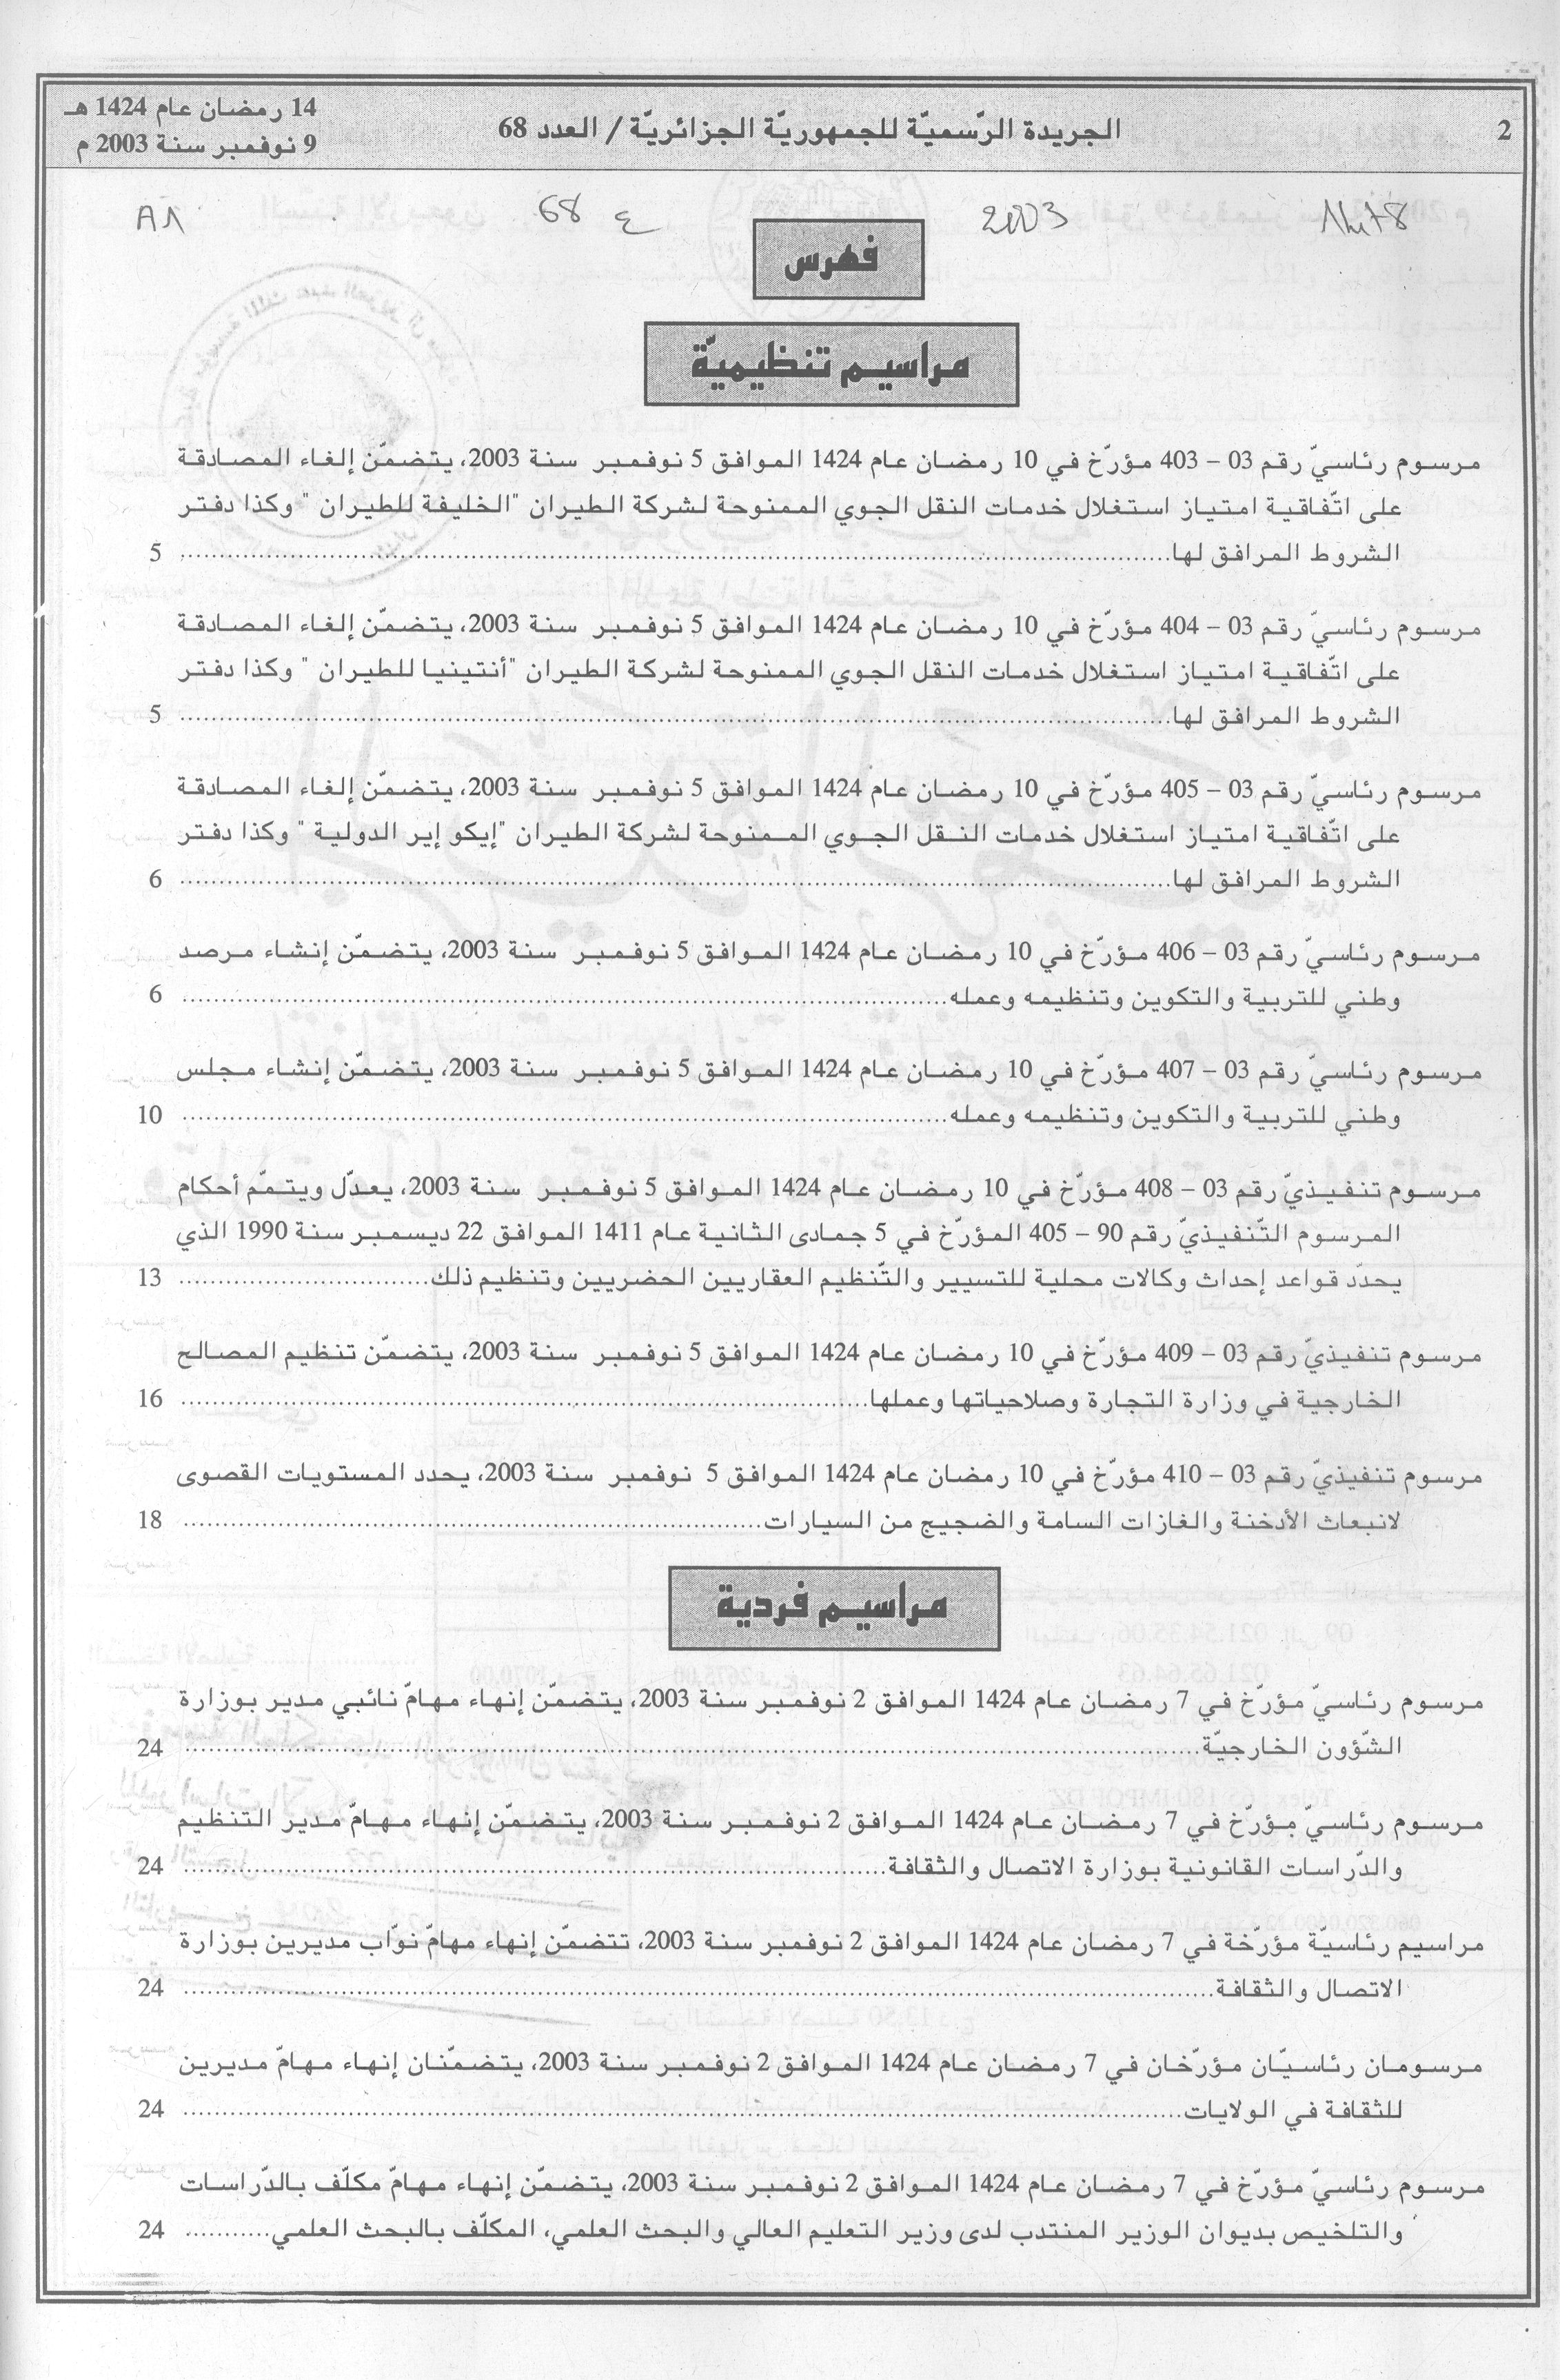 2
الجريدة الرّسميّة للجمهوريّة الجزائريّة / العدد 68
14 رمضان عام 1424 هـ
9 نوفمبر سنة 2003 م
2003
ع 68
فهرس
مراسيم تنظيميّة
مرسوم رئاسيّ رقم 03 – 403 مؤرّخ في 10 رمضان عام 1424 الموافق 5 نوفمبر سنة 2003، يتضمّن إلغاء المصادقة
على اتّفاقية امتياز استغلال خدمات النقل الجوي الممنوحة لشركة الطيران "الخليفة للطيران " وكذا دفتر
الشروط المرافق لها........................................ 5
مرسوم رئاسيّ رقم 03 – 404 مؤرّخ في 10 رمضان عام 1424 الموافق 5 نوفمبر سنة 2003، يتضمّن إلغاء المصادقة
على اتّفاقية امتياز استغلال خدمات النقل الجوي الممنوحة لشركة الطيران "أنتينيا للطيران " وكذا دفتر
الشروط المرافق لها........................................ 5
مرسوم رئاسيّ رقم 03 – 405 مؤرّخ في 10 رمضان عام 1424 الموافق 5 نوفمبر سنة 2003، يتضمّن إلغاء المصادقة
على اتّفاقية امتياز استغلال خدمات النقل الجوي الممنوحة لشركة الطيران "إيكو إير الدولية " وكذا دفتر
الشروط المرافق لها........................................ 6
مرسوم رئاسيّ رقم 03 – 406 مؤرّخ في 10 رمضان عام 1424 الموافق 5 نوفمبر سنة 2003، يتضمّن إنشاء مرصد
وطني للتربية والتكوين وتنظيمه وعمله........................................ 6
مرسوم رئاسيّ رقم 03 – 407 مؤرّخ في 10 رمضان عام 1424 الموافق 5 نوفمبر سنة 2003، يتضمّن إنشاء مجلس
وطني للتربية والتكوين وتنظيمه وعمله........................................ 10
مرسوم تنفيذيّ رقم 03 – 408 مؤرّخ في 10 رمضان عام 1424 الموافق 5 نوفمبر سنة 2003، يعدّل ويتمّم أحكام
المرسوم التّنفيذيّ رقم 90 – 405 المؤرّخ في 5 جمادى الثانية عام 1411 الموافق 22 ديسمبر سنة 1990 الذي
يحدّد قواعد إحداث وكالات محلية للتسيير والتّنظيم العقاريين الحضريين وتنظيم ذلك........................................ 13
مرسوم تنفيذيّ رقم 03 – 409 مؤرّخ في 10 رمضان عام 1424 الموافق 5 نوفمبر سنة 2003، يتضمّن تنظيم المصالح
الخارجية في وزارة التجارة وصلاحياتها وعملها........................................ 16
مرسوم تنفيذيّ رقم 03 – 410 مؤرّخ في 10 رمضان عام 1424 الموافق 5 نوفمبر سنة 2003، يحدد المستويات القصوى
لانبعاث الأدخنة والغازات السامة والضجيج من السيارات........................................ 18
مراسيم فردية
مرسوم رئاسيّ مؤرّخ في 7 رمضان عام 1424 الموافق 2 نوفمبر سنة 2003، يتضمّن إنهاء مهامّ نائبي مدير بوزارة
الشّؤون الخارجيّة........................................ 24
مرسوم رئاسيّ مؤرّخ في 7 رمضان عام 1424 الموافق 2 نوفمبر سنة 2003، يتضمّن إنهاء مهامّ مدير التنظيم
والدّراسات القانونية بوزارة الاتصال والثقافة........................................ 24
مراسيم رئاسيّة مؤرّخة في 7 رمضان عام 1424 الموافق 2 نوفمبر سنة 2003، تتضمّن إنهاء مهامّ نوّاب مديرين بوزارة
الاتصال والثقافة........................................ 24
مرسومان رئاسيّان مؤرّخان في 7 رمضان عام 1424 الموافق 2 نوفمبر سنة 2003، يتضمّنان إنهاء مهامّ مديرين
للثقافة في الولايات........................................ 24
مرسوم رئاسيّ مؤرّخ في 7 رمضان عام 1424 الموافق 2 نوفمبر سنة 2003، يتضمّن إنهاء مهامّ مكلّف بالدّراسات
والتلخيص بديوان الوزير المنتدب لدى وزير التعليم العالي والبحث العلمي، المكلّف بالبحث العلمي........... 24